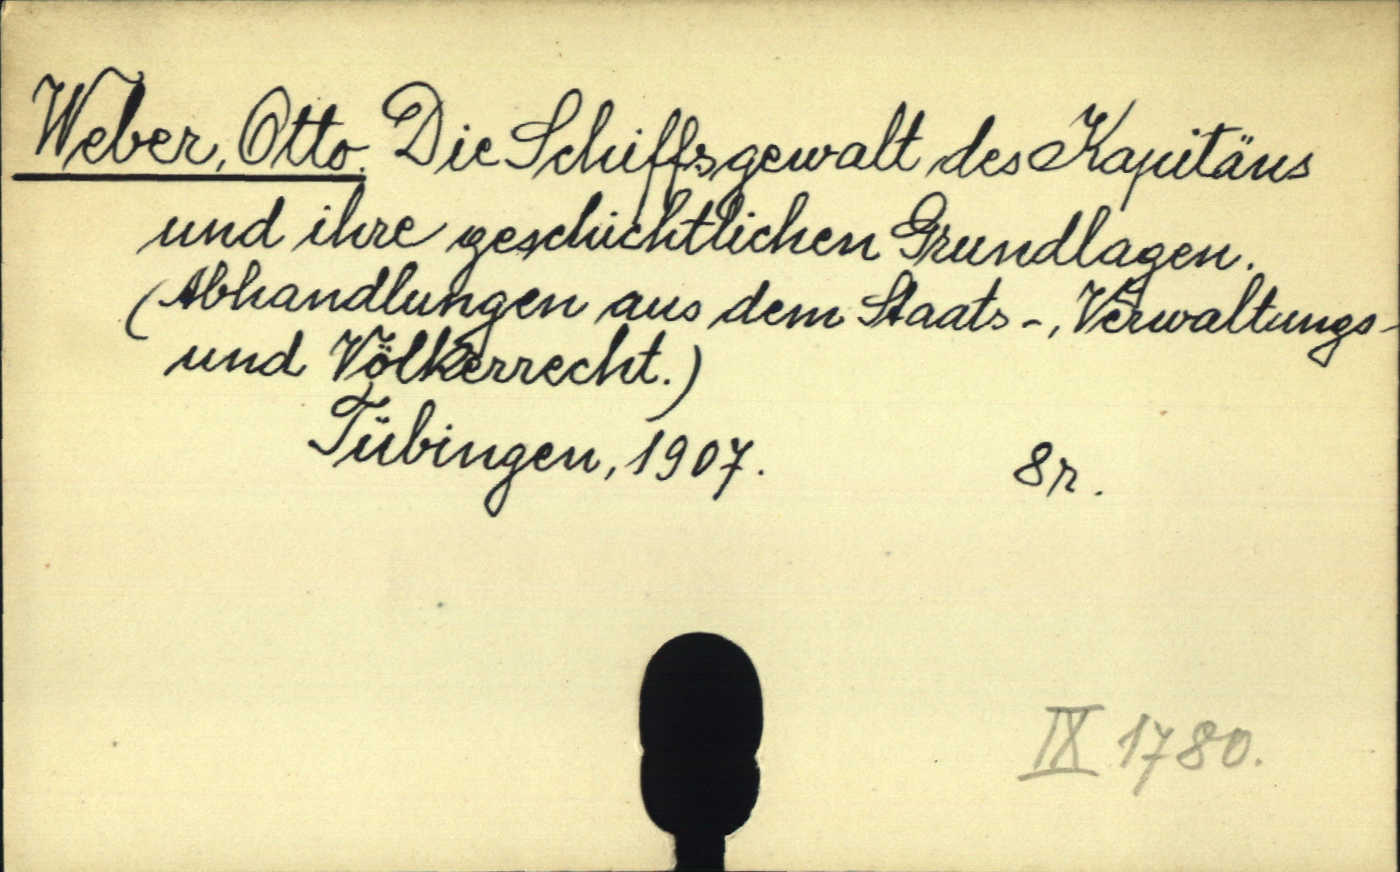 Weber, Otto. Die Schiffsgewalt des Kapitäns
und ihre geschichtlichen Grundlagen.
(Abhandlungen aus dem Staats-, Verwaltungs-
und Völkerrecht.)
Tübingen, 1907. 8r.
IX 1780.